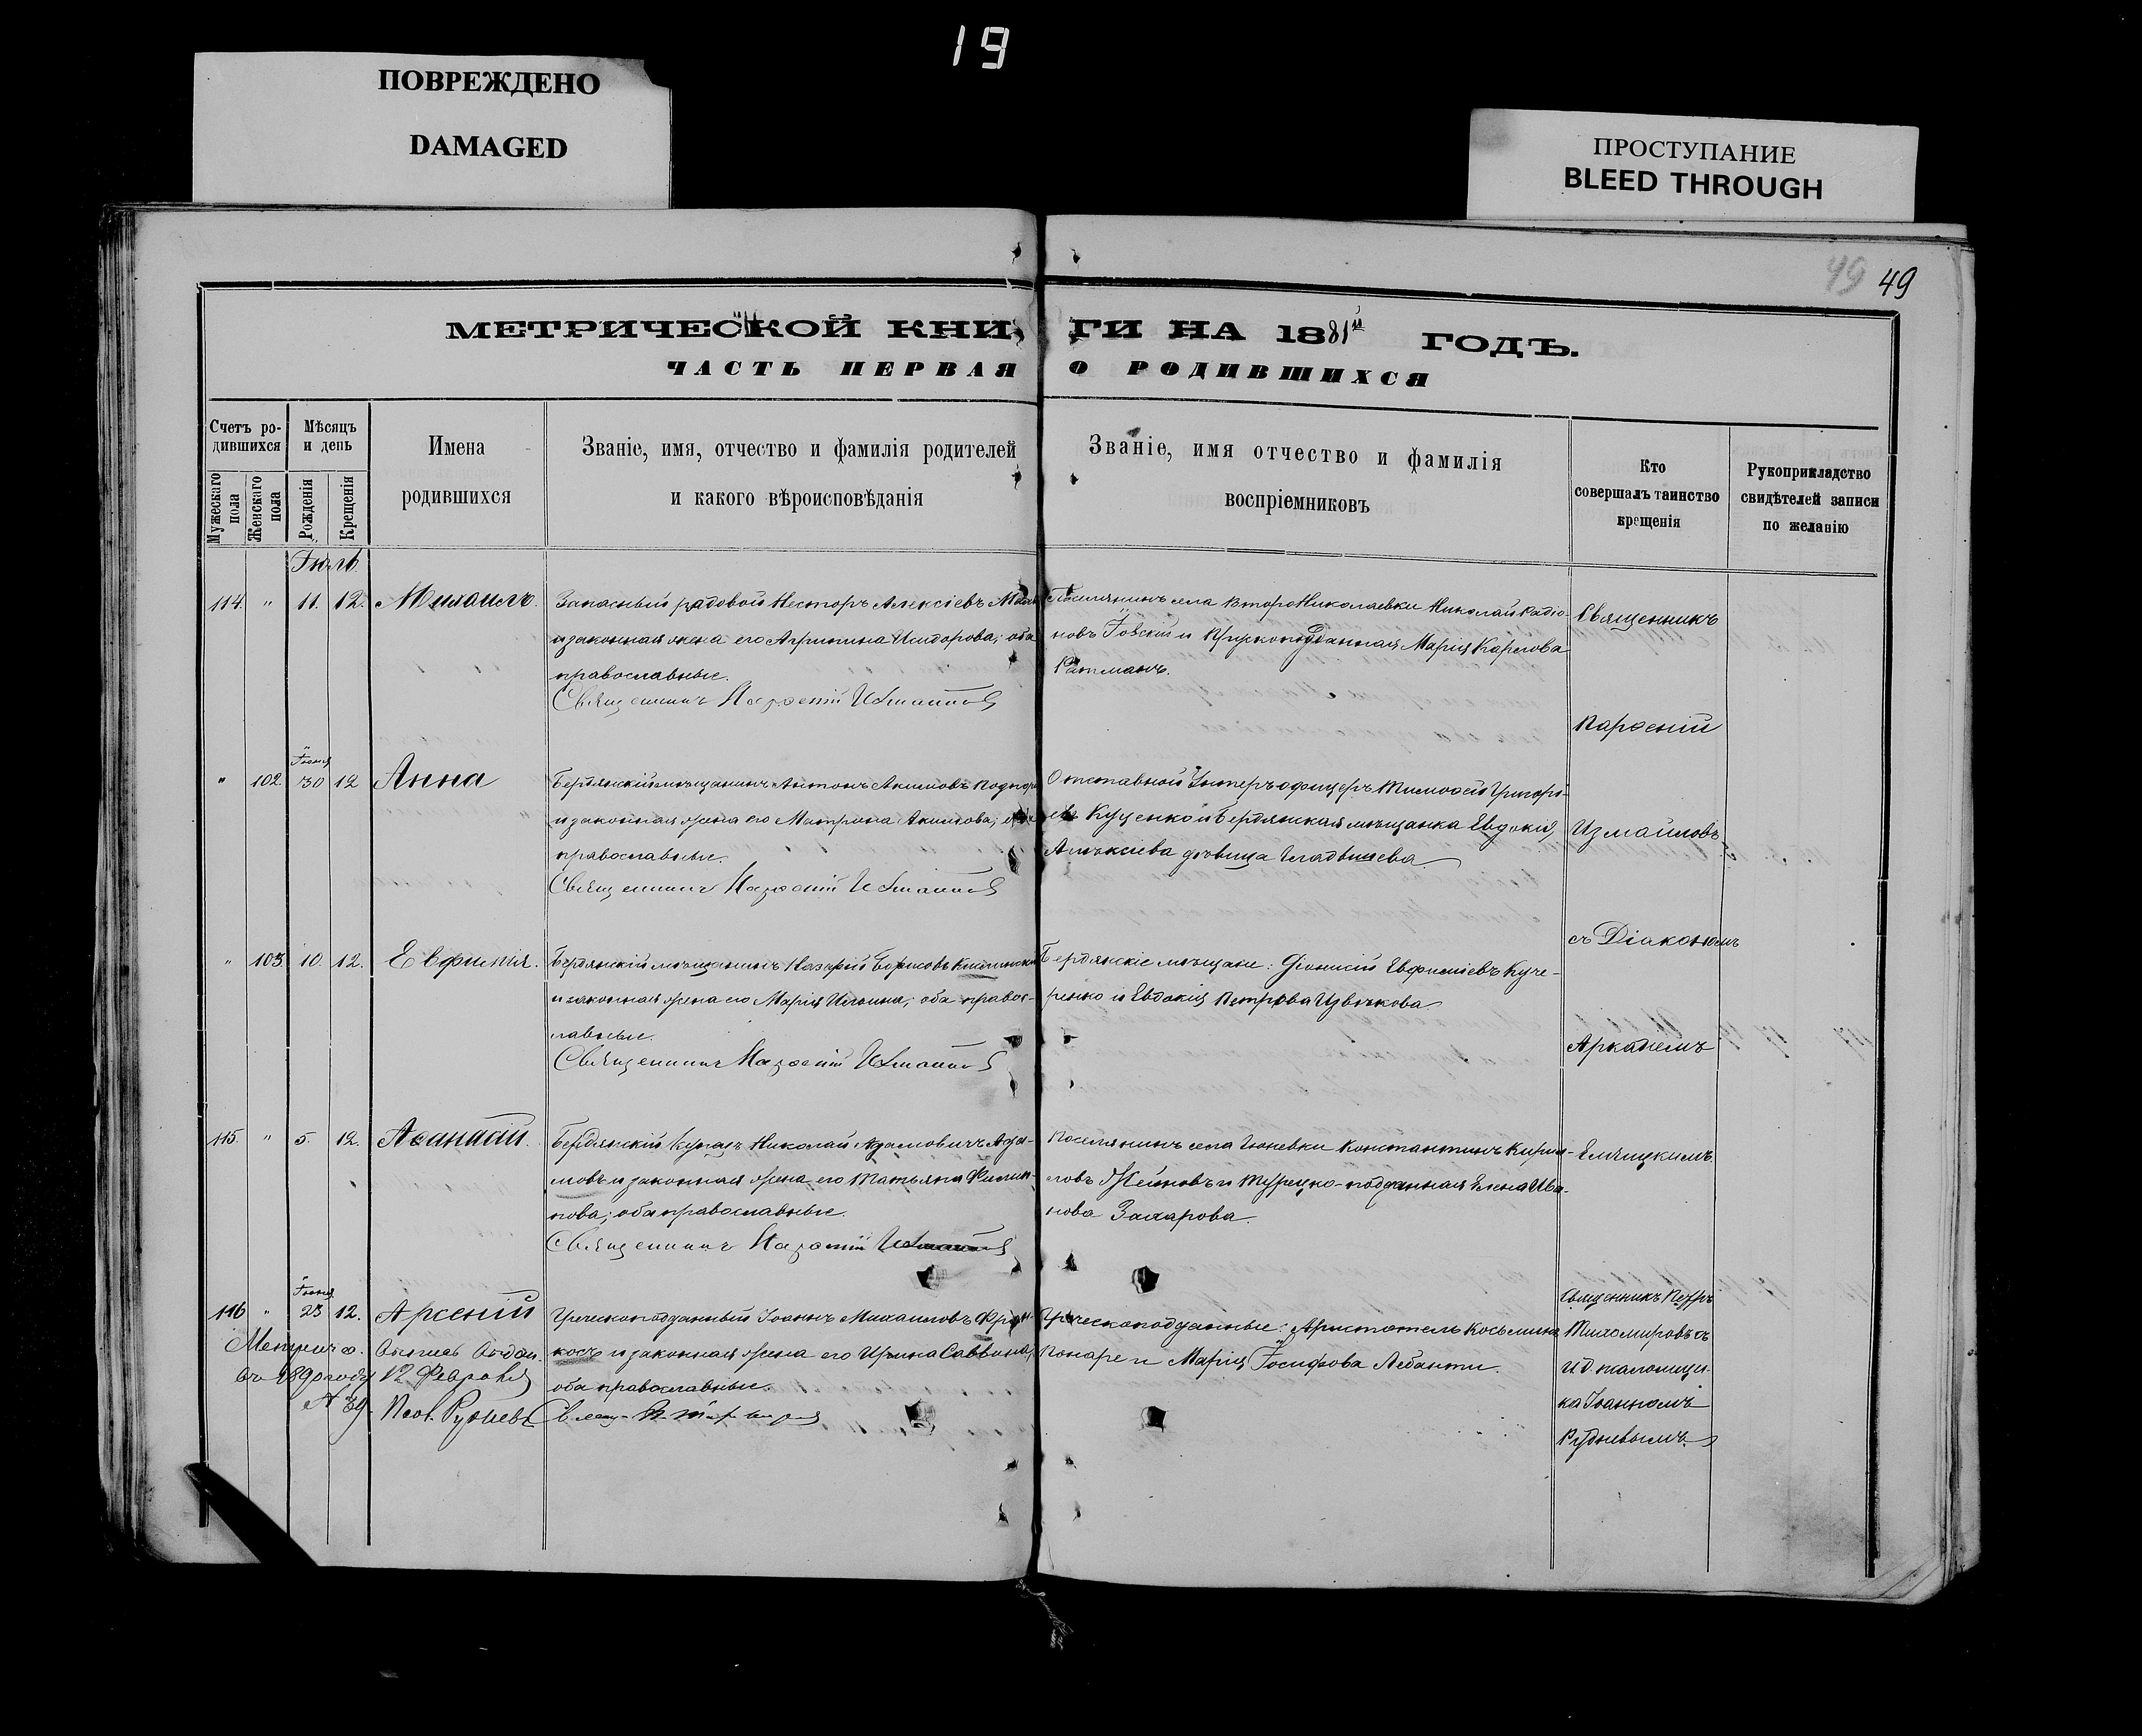 19
ПОВРЕЖДЕНО
DAMAGED
ПРОСТУПАНИЕ
BLEED THROUGH
49 49
МЕТРИЧЕСКОЙ КНИ
ГИ НА 1881й ГОДЪ.
ЧАСТЬ ПЕРВАЯ
О РОДИВШИХСЯ
Счетъ ро-
дившихся
Мужескаго
пола
Женскаго
пола
Мѣсяцъ
и день
Рожденія
Крещенія
Имена
родившихся
Званіе, имя, отчество и фамилія родителей
и какого вѣроисповѣданія
Званіе, имя отчество и фамилія
воспріемниковъ
Кто
совершалъ таинство
крещенія
Рукоприкладство
свидѣтелей записи
по желанію
Іюль.
114. " 11. 12. Михаилъ.
Запасный рядовой Несторъ Алексіевъ
и законная жена его Агрипина Исидорова; оба
православные.
Священникъ Парѳеній Измаиловъ
Поселянинъ села ВтороНиколаевки Николай Радіо-
новъ Говскій и Прускоподданная Марія Карлова
Ратманъ.
Священникъ
Парѳеній
Измаиловъ
съ Діакономъ
Аркадіемъ
Елецкимъ.
" 102. Іюня 30 12 Анна
Бердянскій мѣщанинъ Антонъ Акимовъ
и законная жена его Матрона Акимова; оба
православные.
Священникъ Парѳеній Измаиловъ
Отставной Унтеръ офицеръ Тимоѳей Григорі-
евъ Куценко и Бердянская мѣщанка Евдокія
Алексіева дѣвица Гладышева
" 103. 10. 12. Евфимія.
Бердянскій мѣщанинъ Назарій Борисовъ
и законная жена его Марія Ильина; оба правос-
лавные.
Священникъ Парѳеній Измаиловъ
Бердянскіе мѣщане: Діонисій Евфиміевъ Куче-
ренко и Евдокія Петрова Извѣкова.
115. " 5. 12. Аѳанасій.
Бердянскій Купецъ Николай Адамовичъ Ада-
мовъ и законная жена его Татьяна Филип-
пова; оба православные.
Священникъ Парѳеній Измаиловъ
Поселянинъ села Гюневки Константинъ Кирил-
ловъ Жейновъ и Турецко-подданная Елена Ива-
нова Захарова.
116 " Іюня 23 12. Арсеній
Греческоподданный Іоаннъ Михаиловъ
косъ и законная жена его Ирина Саввина;
оба православные.
Греческоподданные: Аристотель Косьмина
Понаре и Марія Іосифова Лебанти.
Священникъ Петръ
Тихомировъ съ
И.д. псаломщи-
ка Іоанномъ
Рудневымъ.
Метрич.
выпись выдан.
въ 1890 году 12 Февраля
№ 39. Псал. Рудневъ